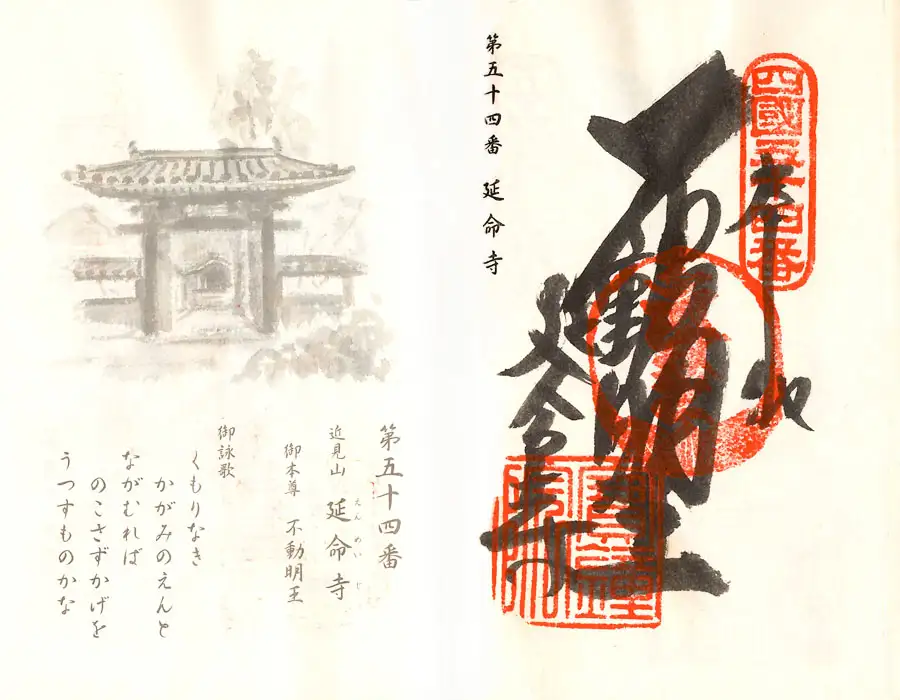 四國五十四番
奉納
不動明王
延命寺
第五十四番 延命寺
第五十四番
近見山 延命寺
えんめいじ
御本尊 不動明王
御詠歌
くもりなき
かがみのえんと
ながむれば
のこさずかげを
うつすものかな